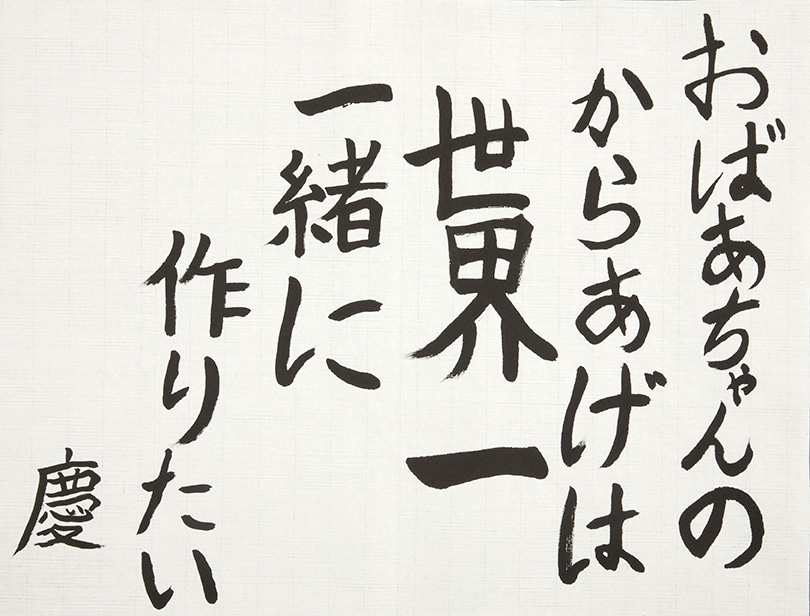 おばあちゃんの
からあげは
世界一
一緒に
作りたい
慶